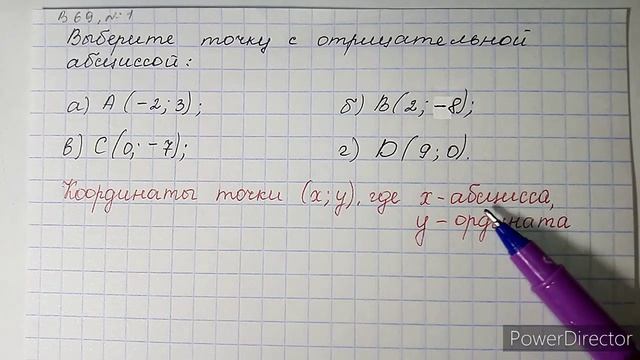 В 69, №1
Выберите точку с отрицательной
абсциссой:
а) A (-2; 3);
б) B (2; -8);
в) C (0; -7);
г) D (9; 0).
Координаты точки (x; y), где x - абсцисса,
y - ордината
PowerDirector